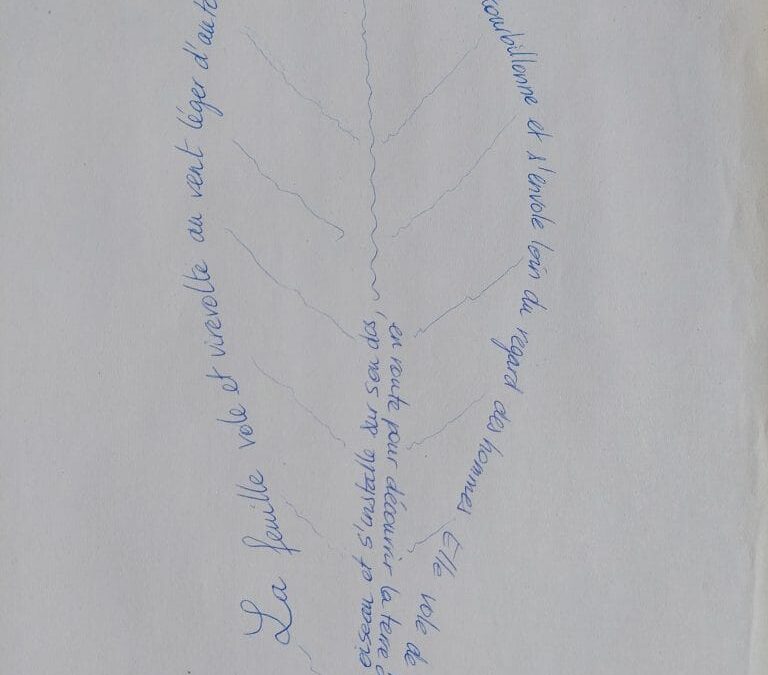 La feuille vole et virevolte au vent léger d'auto
ourbillonne et s'envole loin du regard des hommes Elle vole de
oiseau et s'installe sur son dos,
en route pour découvrir la terre